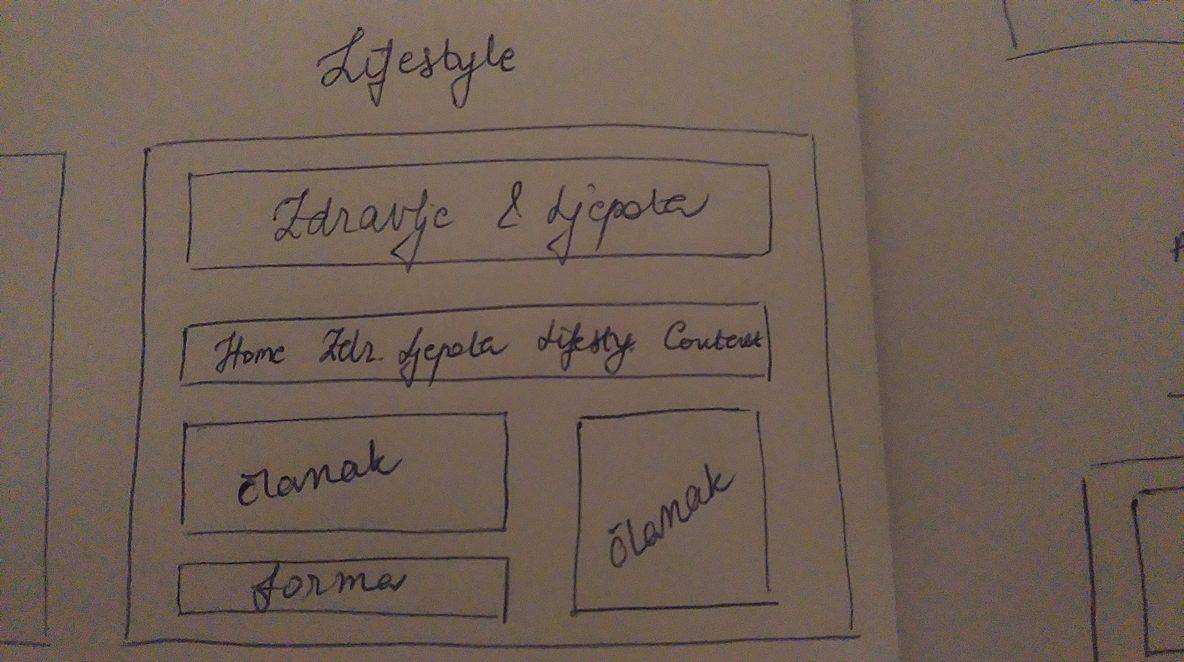 Lifestyle
Zdravlje & Ljepota
Home Zdr. Ljepota Lifesty. Contact
članak
članak
forma